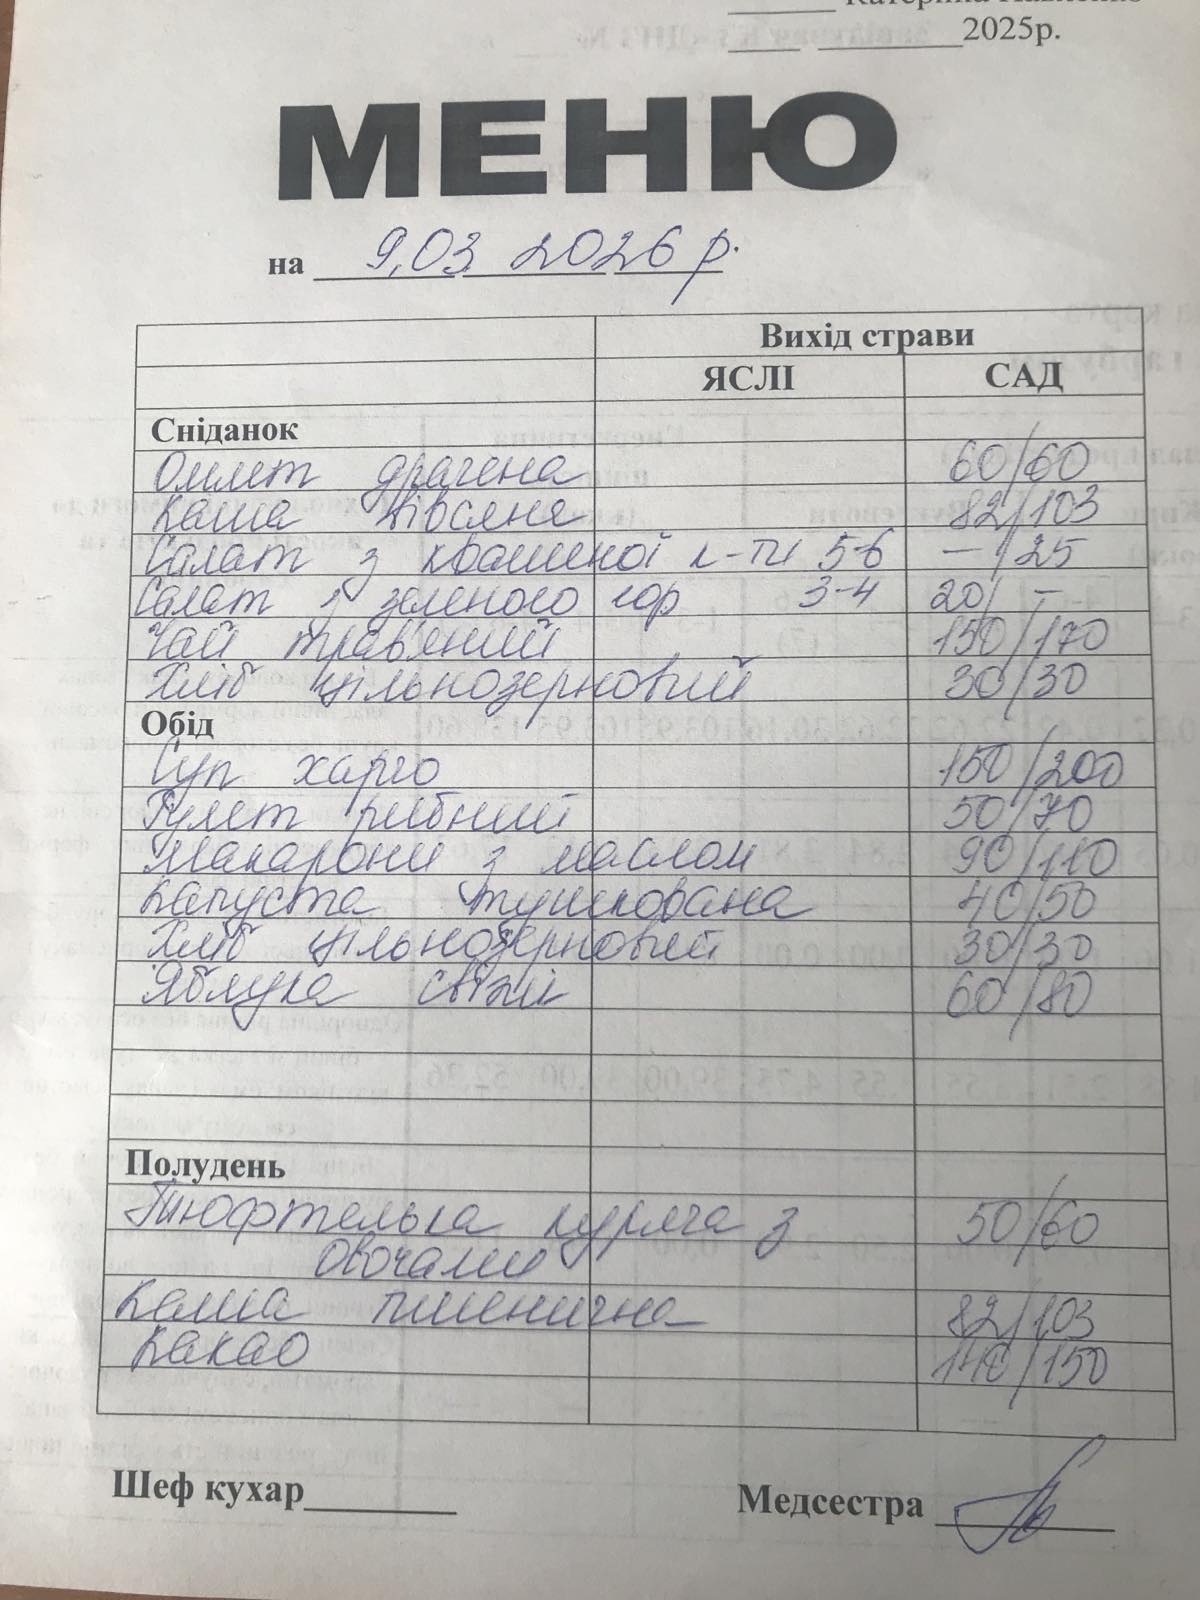 2025р.
МЕНЮ
на 9,03 2026 р.
Вихід страви
ЯСЛІ САД
Сніданок
Омлет драчена 60/60
Каша вівсяна 82/103
Салат з квашеної к-ти 5-6 — /25
Салат з зеленого гор 3-4 20/ -
Чай трав'яний 150/170
Хліб цільнозерновий 30/30
Обід
Суп харчо 150/200
рибний 50/70
Макарони з маслом 90/110
Капуста тушкована 40/50
Хліб цільнозерновий 30/30
Яблука свіжі 60/80
Полудень
Тюфтелька куряча з 50/60
овочами
Каша пшенична 82/103
Какао 140/150
Шеф кухар
Медсестра